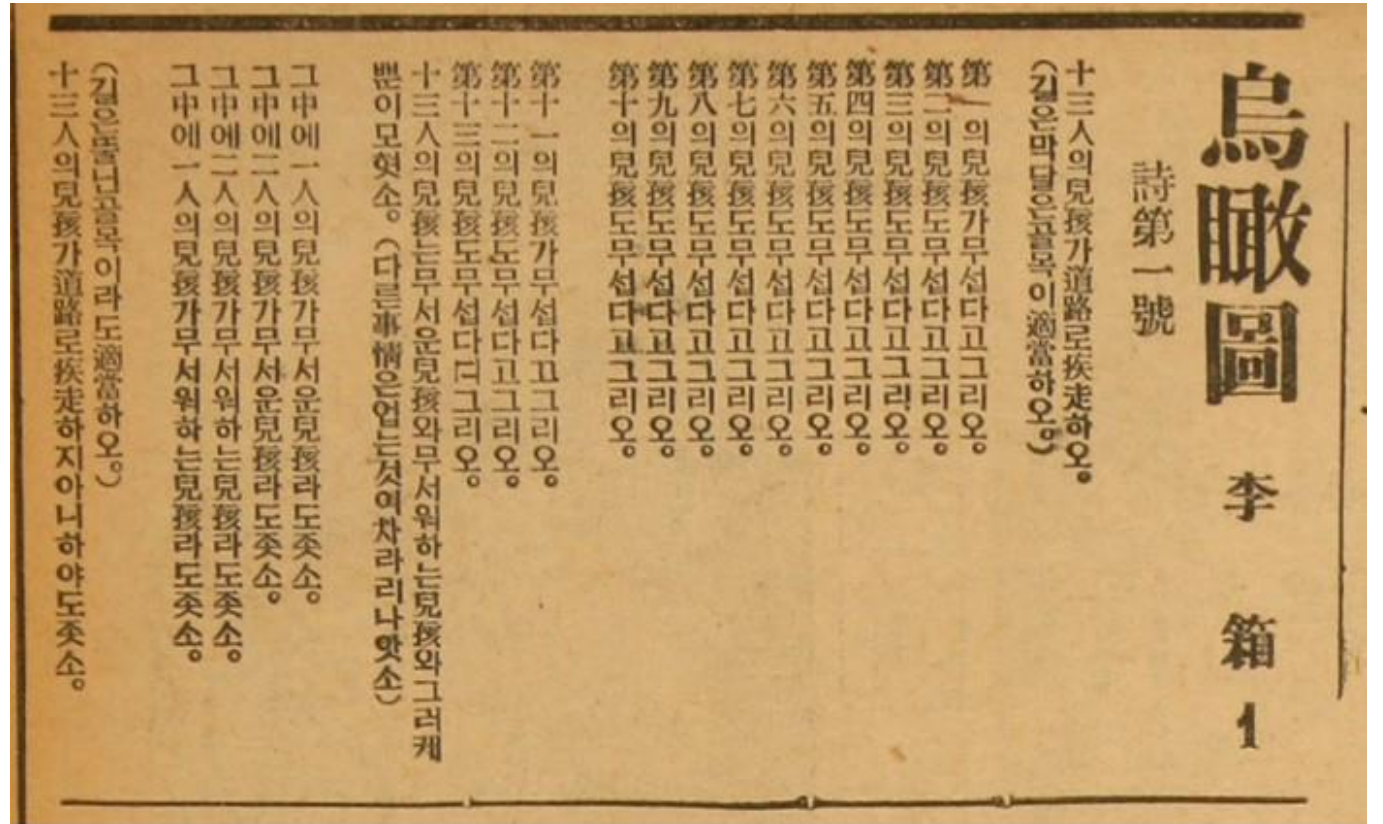 烏瞰圖 李箱 1
詩第一號
十三人의兒孩가道路로疾走하오。
(길은막달은골목이適當하오。)
第一의兒孩가무섭다고그리오。
第二의兒孩도무섭다고그리오。
第三의兒孩도무섭다고그리오。
第四의兒孩도무섭다고그리오。
第五의兒孩도무섭다고그리오。
第六의兒孩도무섭다고그리오。
第七의兒孩도무섭다고그리오。
第八의兒孩도무섭다고그리오。
第九의兒孩도무섭다고그리오。
第十의兒孩도무섭다고그리오。
第十一의兒孩가무섭다고그리오。
第十二의兒孩도무섭다고그리오。
第十三의兒孩도무섭다고그리오。
十三人의兒孩는무서운兒孩와무서워하는兒孩와그러케
뿐이모혓소。(다른事情은업는것이차라리나앗소)
그中에一人의兒孩가무서운兒孩라도좃소。
그中에二人의兒孩가무서운兒孩라도좃소。
그中에二人의兒孩가무서워하는兒孩라도좃소。
그中에一人의兒孩가무서워하는兒孩라도좃소。
(길은뚤닌골목이라도適當하오。)
十三人의兒孩가道路로疾走하지아니하야도좃소。